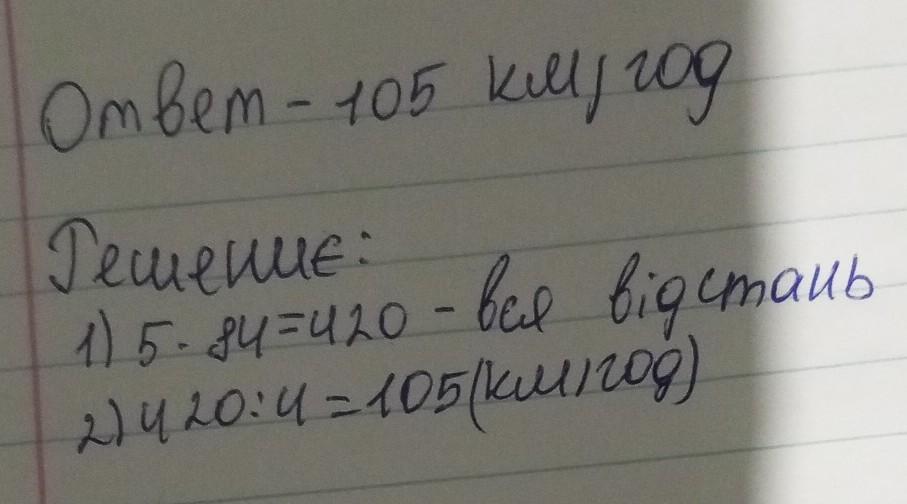 Ответ - 105 км/год
Решение:
1) 5 · 84 = 420 - вся відстань
2) 420 : 4 = 105 (км/год)